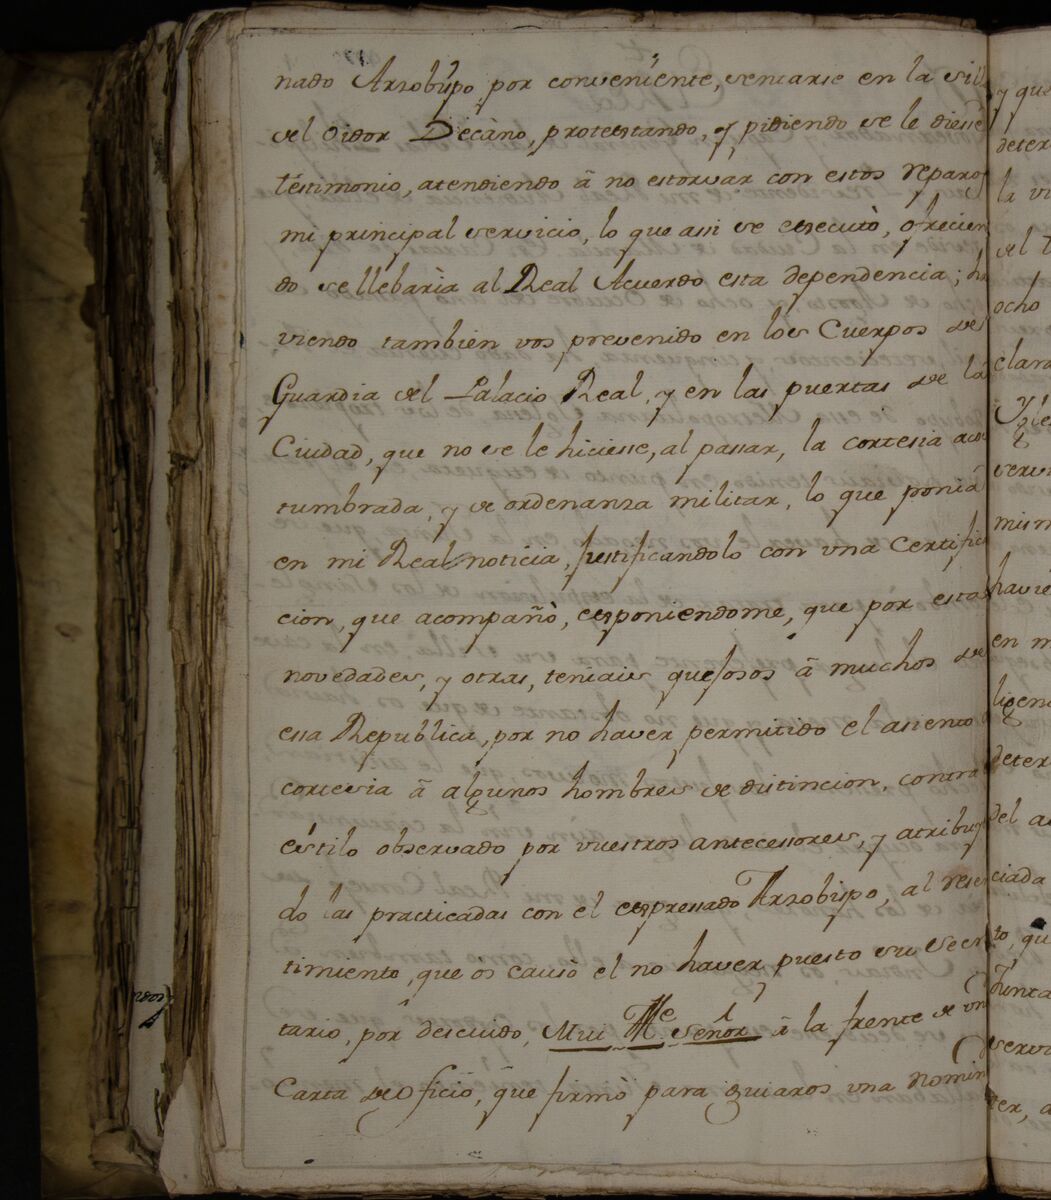 nado Arzobispo por conveniente, sentarse en la sill
del Oidor Decano, protestando, y pidiendo se le diesse
testimonio, atendiendo â no estorvar con estos reparos
mi principal servicio, lo que assi se executò, ofrecien
do se llebaria al Real Acuerdo esta dependencia; ha
viendo tambien vos prevenido en los Cuerpos de
Guardia del Palacio Real, y en las puertas de la
Ciudad, que no se le hiciesse, al passar, la cortesia acos
tumbrada, y de ordenanza militar, lo que ponia
en mi Real noticia, justificandolo con una Certifi
cion, que acompañò, exponiendome, que por esta
novedades, y otras, teniais quejosos â muchos de
essa Republica, por no haver permitido el asiento
cortesia â algunos hombres de distincion, contra
estilo observado por vuestros antecessores, y atribuy
do las practicadas con el expressado Arzobispo, al resen
timiento, que os causò el no haver puesto su Secre
tario, por descuido, Mui Ille Señor â la frente de un
Carta de Oficio, que firmò para guiaros una nomin
y que
deter
la vi
del
ocho
clara
Ygle
servi
mism
havie
en m
ligen
deter
del a
ciada
to, qu
Junta
serva
ter, a